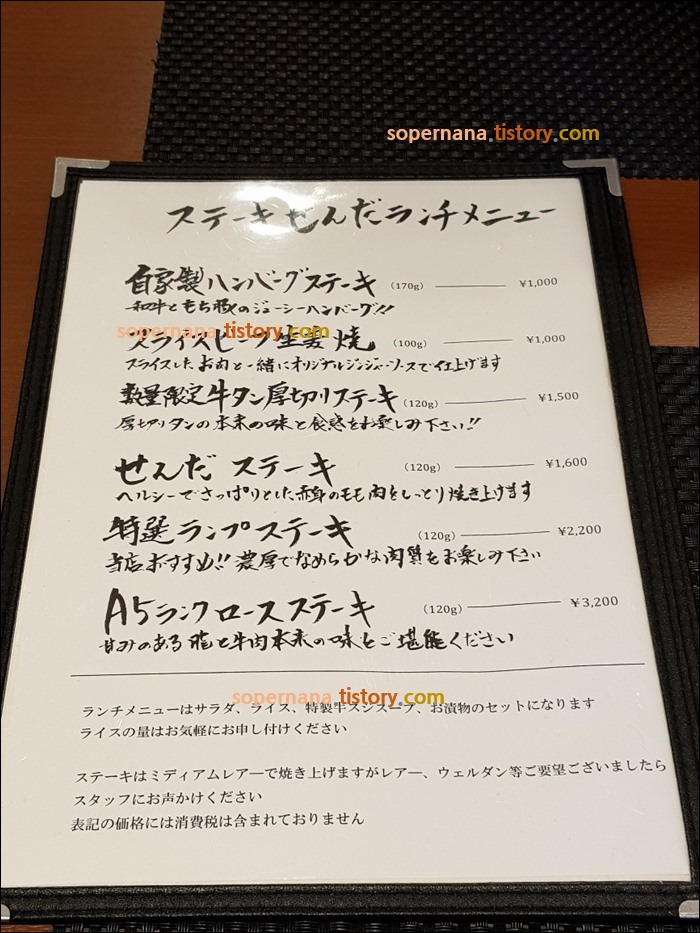 sopernana.tistory.com
ステーキせんだランチメニュー
自家製ハンバーグステーキ (170g) ¥1,000
和牛ともち豚のジューシーハンバーグ!!
sopernana.tistory.com
スライスビーフ生姜焼 (100g) ¥1,000
スライスしたお肉と一緒にオリジナルジンジャーソースで仕上げます
数量限定牛タン厚切りステーキ (120g) ¥1,500
厚切りタンの本来の味と食感をお楽しみ下さい!!
せんだ ステーキ (120g) ¥1,600
ヘルシーでさっぱりとした赤身のモモ肉をしっとり焼き上げます
特選ランプステーキ (120g) ¥2,200
当店おすすめ!! 濃厚でなめらかな肉質をお楽しみ下さい
A5ランクロースステーキ (120g) ¥3,200
甘みのある脂と牛肉本来の味をご堪能ください
sopernana.tistory.com
ランチメニューはサラダ、ライス、特製牛スジスープ、お漬物のセットになります
ライスの量はお気軽にお申し付けください
ステーキはミディアムレア―で焼き上げますがレア―、ウェルダン等ご要望ございましたら
スタッフにお声かけください
表記の価格には消費税は含まれておりません